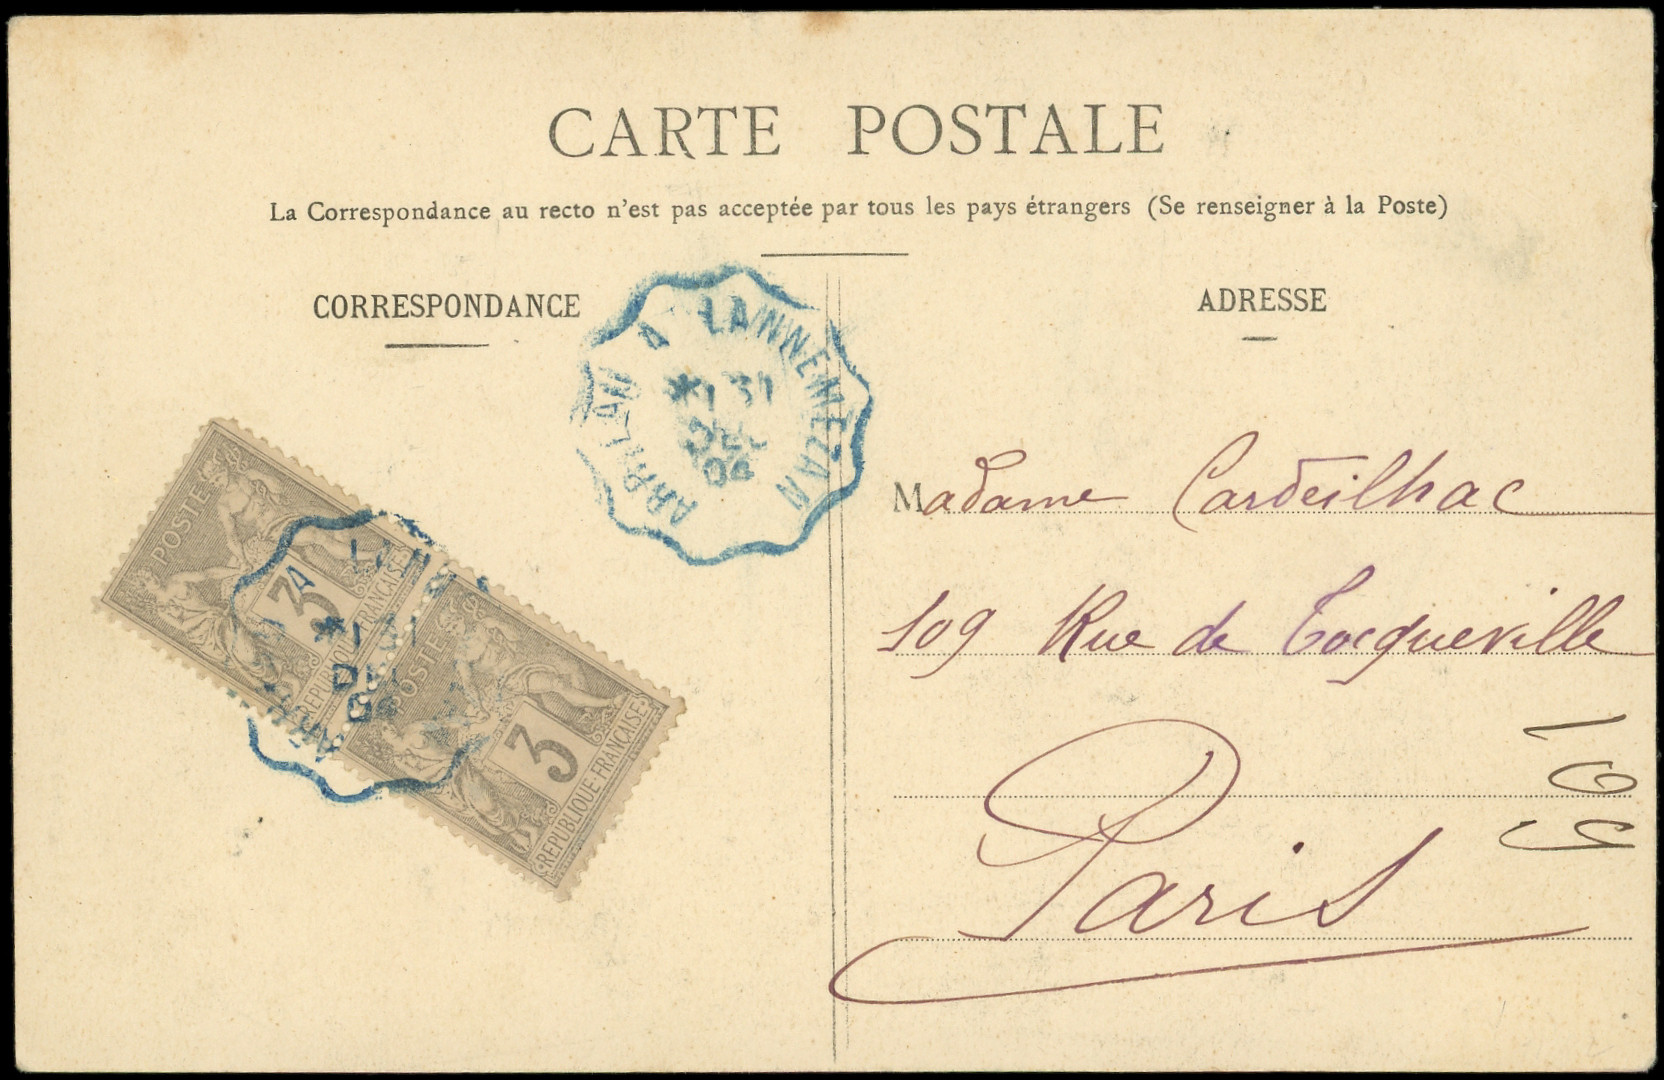 CARTE POSTALE
La Correspondance au recto n'est pas acceptée par tous les pays étrangers (Se renseigner à la Poste)
CORRESPONDANCE
ADRESSE
ARREAU A LANNEMEZAN
31
DEC
04
POSTE
3
REPUBLIQUE FRANÇAISE
A
31
DEC
04
POSTE
3
REPUBLIQUE FRANÇAISE
Madame Cardeilhac
109 Rue de Tocqueville
Paris
109